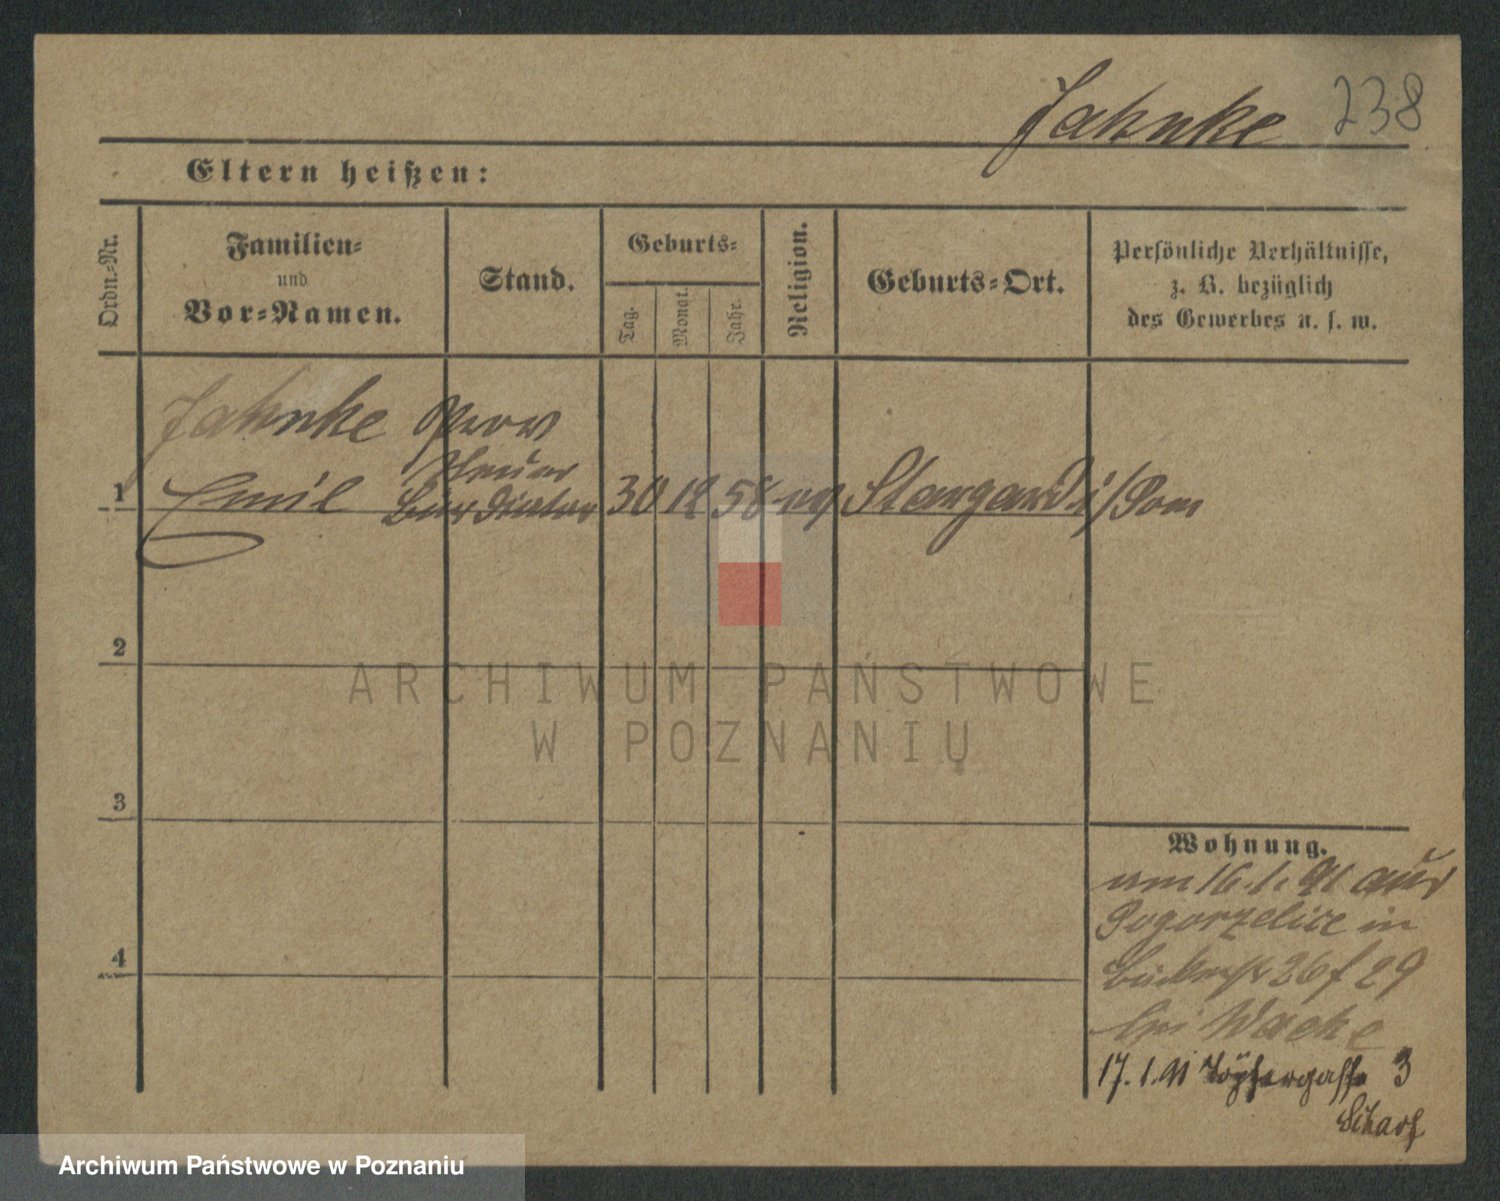 Jahnke 238
Eltern heißen:
Ordn.-Nr.
Familien-
und
Vor-Namen.
Stand.
Geburts-
Tag.
Monat.
Jahr.
Religion.
Geburts-Ort.
Persönliche Verhältnisse,
z. B. bezüglich
des Gewerbes u. s. w.
Jahnke Prov
Steuer
1 Emil Bür Diätar 30 12 58 ev Stargard i/Pom
2
3
4
Wohnung.
am 16.1.91 aus
Pogorzelice in
26 f 29
bei
17.1.91 Töpfergasse 3
Scharf
ARCHIWUM PAŃSTWOWE
W POZNANIU
Archiwum Państwowe w Poznaniu